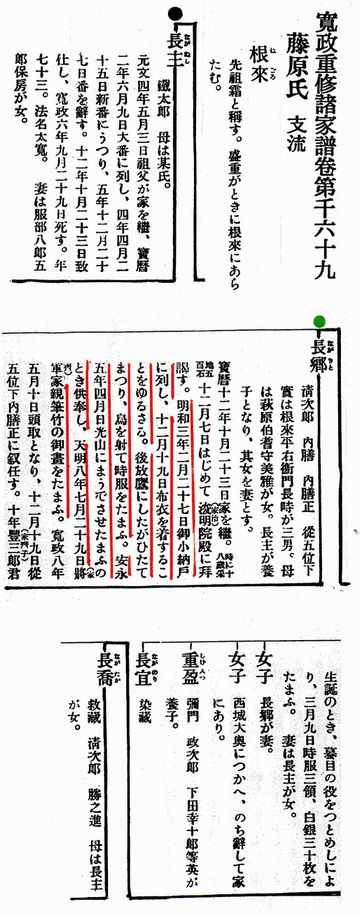 寬政重修諸家譜卷第千六十九
藤原氏 支流
根來
ねごろ
先祖霜と稱す。盛重がときに根來にあら
たむ。
●
長主
ながぬし
鐵太郎 母は某氏。
元文四年五月三日祖父が家を繼、寶曆
二年六月九日大番に列し、四年四月二
十五日新番にうつり、五年十二月二十
七日番を辭す。十二年十月二十三日致
仕し、寬政六年九月二十九日死す。年
七十三。法名太寬。 妻は服部八郎五
郎保房が女。
●
長鄕
ながさと
淸次郎 內膳 內膳正 從五位下
實は根來平右衞門長時が三男。母
は萩原伯耆守美雅が女。長主が養
子となり、其女を妻とす。
寶曆十二年十月二十三日家を繼。時に十八歲采
地五百石十二月七日はじめて浚明院殿に拜
謁す。明和三年二月二十七日御小納戶
に列し、十二月十九日布衣を着するこ
とをゆるさる。後放鷹にしたがひたて
まつり、鳥を射て時服をたまふ。安永
五年四月日光山にまうでさせたまふの
とき供奉し、天明八年七月二十九日將(家
齊)
軍家親筆竹の御畫をたまふ。寬政八年
五月十日頭取となり、十二月十九日從
五位下內膳正に叙任す。十年豐三郎君(家齊子)
生誕のとき、蟇目の役をつとめしによ
り、三月九日時服三領、白銀三十枚を
たまふ。 妻は長主が女。
女子
長鄕が妻。
女子
西城大奧につかへ、のち辭して家
にあり。
重盈
彌門 政次郎 下田幸十郎等英が
養子。
長宜
ながのり
染藏
長喬
ながたか
敎藏 淸次郎 勝之進 母は長主
が女。